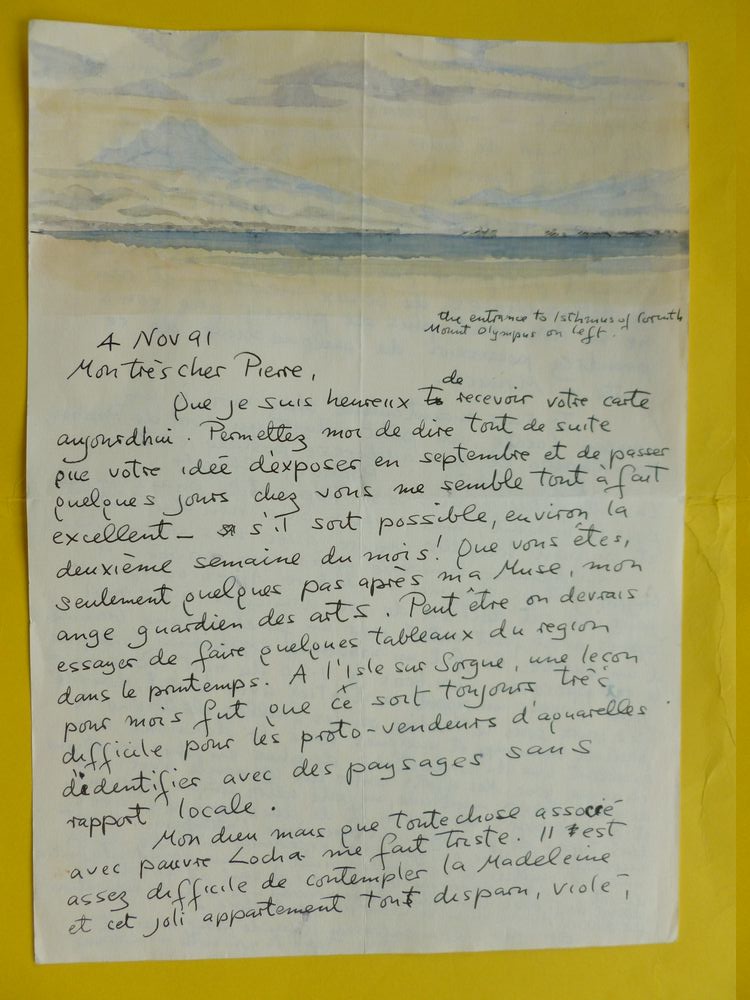 the entrance to Isthmus of Corinth
Mount Olympus on left.
4 Nov 91
Mon très cher Pierre,
Que je suis heureux de recevoir votre carte
aujourdhui. Permettez moi de dire tout de suite
que votre idée d'exposer en septembre et de passer
quelques jours chez vous me semble tout à fait
excellent – s'il soit possible, environ la
deuxième semaine du mois! Que vous êtes,
seulement quelques pas après ma Muse, mon
ange guardien des arts. Peut être on devrais
essayer de faire quelques tableaux du region
dans le printemps. A l'Isle sur Sorgue, une leçon
pour mois fut que ce soit toujours très
difficile pour les proto-vendeurs d'aquarelles
d'identifier avec des paysages sans
rapport locale.
Mon dieu mais que toute chose associé
avec pauvre Locha me fait triste. Il est
assez difficile de contempler la Madeleine
et cet joli appartement tout disparu, violé,